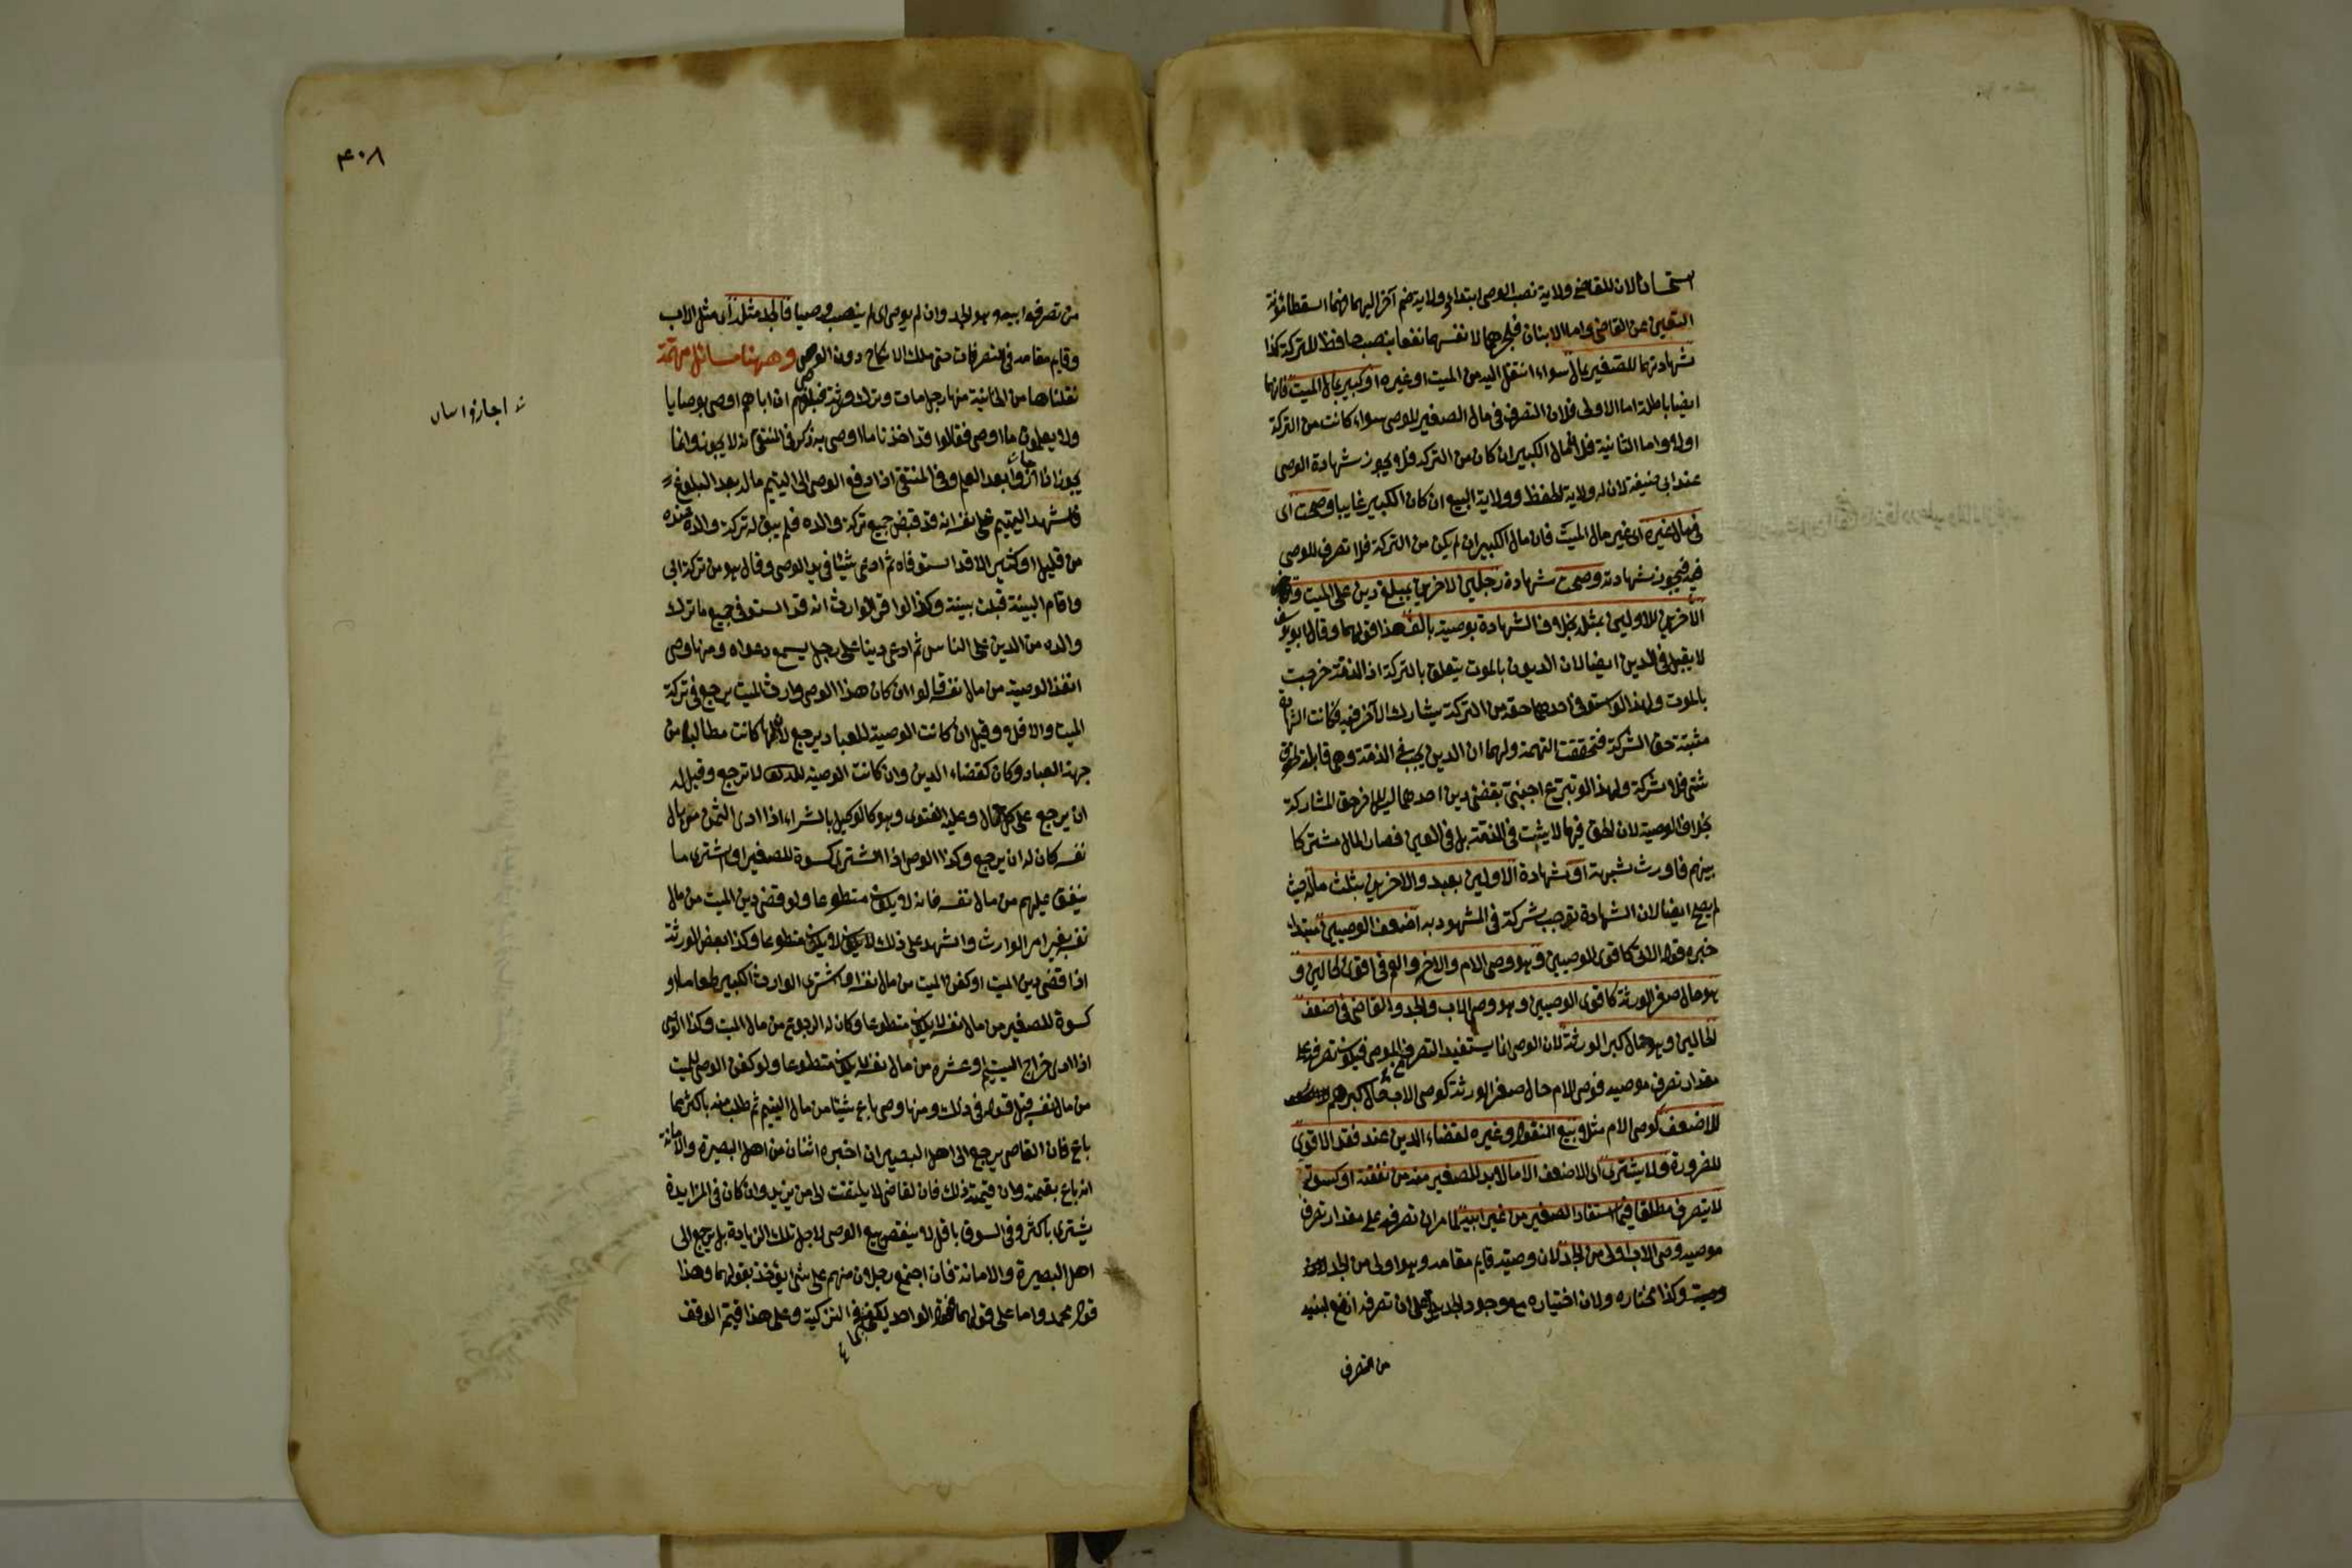 استحسانا لان للقاضي ولاية نصب الوصي ابتداء وولاية ضم آخر اليهما فهما اسقطا مؤنة
التعيين عن القاضي واما الابنان فلجرهما لانفسهما نفعا بنصب حافظ للتركة كذا
شهادتهما للصغير بمال سواء انتقل اليه من الميت او غيره او كبير بمال الميت فانها
ايضا باطلة اما الاولى فلان التصرف في مال الصغير للوصي سواء كانت من التركة
او لا واما الثانية فلان مال الكبير ان كان من التركة فلا يجوز شهادة الوصي
عند ابي حنيفة لان له ولاية الحفظ وولاية البيع ان كان الكبير غايبا وصحت اى
في مال غيره اى غير مال الميت فان مال الكبير ان لم يكن من التركة فلا تصرف للوصي
فيه فيجوز شهادته وصحت شهادة رجلين لآخرين بمبلغ دين على الميت و
الآخرين للاولين بمثله بخلاف الشهادة بوصية بالف هذا قولهما وقال ابو يوسف
لا يقبل في الدين ايضا لان الديون بالموت يتعلق بالتركة اذ الذمة خرجت
بالموت ولهذا لو استوفى احدهما حقه من التركة يشارك الآخر فيه فكانت الشهادة
مثبتة حق الشركة فتحققت التهمة ولهما ان الدين يجب في الذمة وهي قابلة لحقوق
شتى فلا شركة ولهذا لو تبرع اجنبي بقضى دين احدهما ليس للآخر حق المشاركة
بخلاف الوصية لان الحق فيها لا يثبت في الذمة بل في العين فصار المال مشتركا
بينهم فاورث شبهة او شهادة الاولين بعبد والآخرين بثلث ماله حيث
لم يصح ايضا لان الشهادة توجب شركة في المشهود به اضعف الوصيين مبتداء
خبره قوله الآتى كاقوى الوصيين وهو وصى الام والاخ والعم في اقوى الحالين و
هو حال صغر الورثة كاقوى الوصيين وهو وصى الاب والجد والقاضي في اضعف
الحالين وهو حال كبر الورثة لان الوصى انما يستفيد التصرف من الموصى فيكون تصرفه على
مقدار تصرف موصيه فوصى الام حال صغر الورثة كوصى الاب حال كبرهم
للاضعف كوصى الام مثلا بيع المنقول وغيره لقضاء الدين عند فقد الاقوى
للضرورة ولا يشترى اى الاضعف الا ما لا بد للصغير منه من نفقته او كسوته
لا يتصرف مطلقا فيما استفاد الصغير من غير ابيه لما مر ان تصرفه على مقدار تصرف
موصيه وصى الاب اولى من الجد لان وصيه قايم مقامه وهو اولى من الجد
وصيه وكذا مختاره ولان اختياره مع وجود الجد يدل على ان تصرفه انفع لبنيه
من تصرف
٤٠٨
من تصرف ابيه وهو الجد وان لم يوص اى لم ينصب وصيا فالجد مثله اى مثل الاب
وقايم مقامه في التصرفات حتى ملك الانكاح دون الوصى وههنا مسائل مهمة
نقلناها من الخانية منها رجل مات وترك ورثة فبلغهم ان اباهم اوصى بوصايا
ولا يعلمون ما اوصى فقالوا قد اجزنا ما اوصى به ذكر في المنتقى انه لا يجوز وانما
يجوز اذا اجازوا بعد العلم وفي المنتقى اذا دفع الوصى الى اليتيم ماله بعد البلوغ
فاشهد اليتيم على نفسه انه قد قبض جميع تركة والده فلم يبق له تركة والده عنده
من قليل او كثير الا قد استوفاه ثم ادعى شيئا في يد الوصى وقال هو من تركة ابى
واقام البينة قبلت بينته وكذا لو اقر الوارث انه قد استوفى جميع ما ترك
والده من الدين على الناس ثم ادعى دينا على رجل يسمع دعواه ومنها وصى
انفذ الوصية من مال نفسه قالوا ان كان هذا الوصى وارث الميت يرجع في تركة
الميت والا فلا وقيل ان كانت الوصية للعباد يرجع لانها كانت مطالبا من
جهة العباد وكان كقضاء الدين وان كانت الوصية لله تعالى لا يرجع وقيل له
ان يرجع على كل حال وعليه الفتوى وهو كالوكيل بالشراء اذا ادى الثمن من مال
نفسه كان له ان يرجع وكذا الوصى اذا اشترى كسوة للصغير او اشترى ما
ينفق عليهم من مال نفسه فانه لا يكون متطوعا ولو قضى دين الميت من مال
نفسه بغير امر الوارث واشهد على ذلك لا يكون متطوعا وكذا بعض الورثة
اذا قضى دين الميت او كفن الميت من مال نفسه او اشترى الوارث الكبير طعاما او
كسوة للصغير من مال نفسه لا يكون متطوعا وكان له الرجوع من مال الميت وكذا الوصى
اذا ادى خراج اليتيم او عشره من مال نفسه لا يكون متطوعا ولو كفن الوصى الميت
من مال نفسه قبل قوله في ذلك ومنها وصى باع شيئا من مال اليتيم ثم طلب منه باكثر مما
باع فان القاضى يرجع الى اهل البصيرة ان اخبره اثنان من اهل البصيرة والامانة
انه باع بقيمته وان قيمته ذلك فان القاضى لا يلتفت الى من يزيد وان كان في المزايدة
يشترى باكثر وفي السوق باقل لا ينقض بيع الوصى لاجل تلك الزيادة بل يرجع الى
اهل البصيرة والامانة فان اجتمع رجلان منهم على شئ يؤخذ بقولهما وهذا
قول محمد واما على قولهما فقول الواحد يكفى كما في التزكية وعلى هذا قيمة الوقف